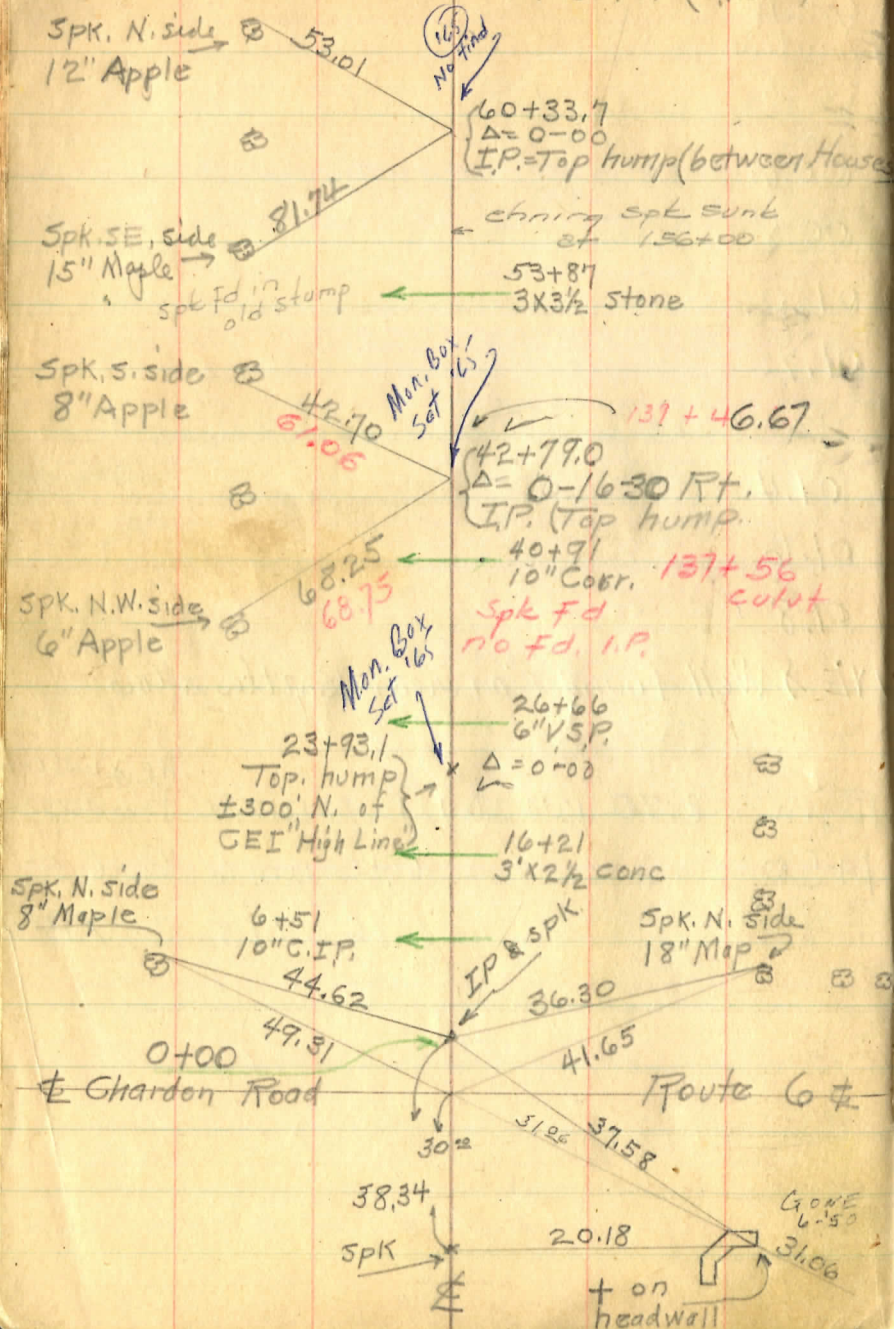 '65
No find
Spk. N. side
12" Apple
53.01
60+33.7
Δ= 0-00
I.P.=Top hump (between Houses
81.74
chning spk sunk
at 156+00
Spk. SE. side
15" Maple
spk Fd in
old stump
53+87
3X3½ stone
Spk. S. side
8" Apple
42.70
61.06
Mon. Box
Set '65
139 + 46.67
42+79.0
Δ= 0-16-30 Rt.
I.P. (Top hump
68.25
68.75
40+91
10" Corr.
137+56
culvt
Spk. N.W. side
6" Apple
Spk Fd
no Fd. I.P.
Mon. Box
Set '65
26+66
6" V.S.P.
23+93.1
Top. hump
±300' N. of
CEI "High Line"
Δ = 0-00
16+21
3'X2½ conc
Spk. N. side
8" Maple
6+51
10" C.I.P.
IP & spk
Spk. N. side
18" Map
44.62
36.30
49.31
41.65
0+00
℄ Chardon Road
Route 6 ℄
30
31.06
37.58
38.34
Spk
20.18
GONE
6-'50
31.06
℄
+ on
headwall